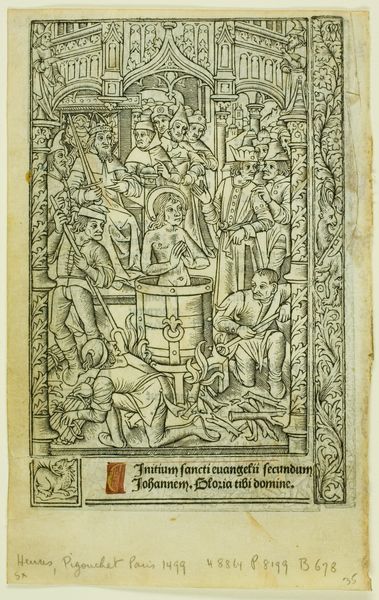 Initium sancti evangelii secundum
Johannem. Gloria tibi domine.
Heures, Pigouchet Paris 1499 48864 P 8199 B 678